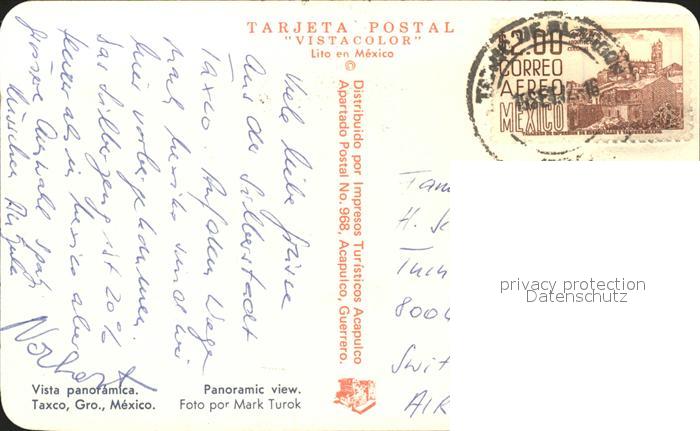 TARJETA POSTAL
"VISTACOLOR"
Lito en México
©
Distribuido por Impresos Turísticos Acapulco
Apartado Postal No. 968, Acapulco, Guerrero.
$2.00
CORREO
AEREO
MEXICO
Viele liebe Grüsse
aus der Silberstadt
Taxco. Auf dem Wege
nach Mexiko sind wir
hier vorbeigekommen.
Das Silberzeug ist 20%
teurer als in Mexico aber
grosse Auswahl
Norbert
Fam
H. Sc
8004
Swit
AIR
privacy protection
Datenschutz
Vista panorámica.
Taxco, Gro., México.
Panoramic view.
Foto por Mark Turok